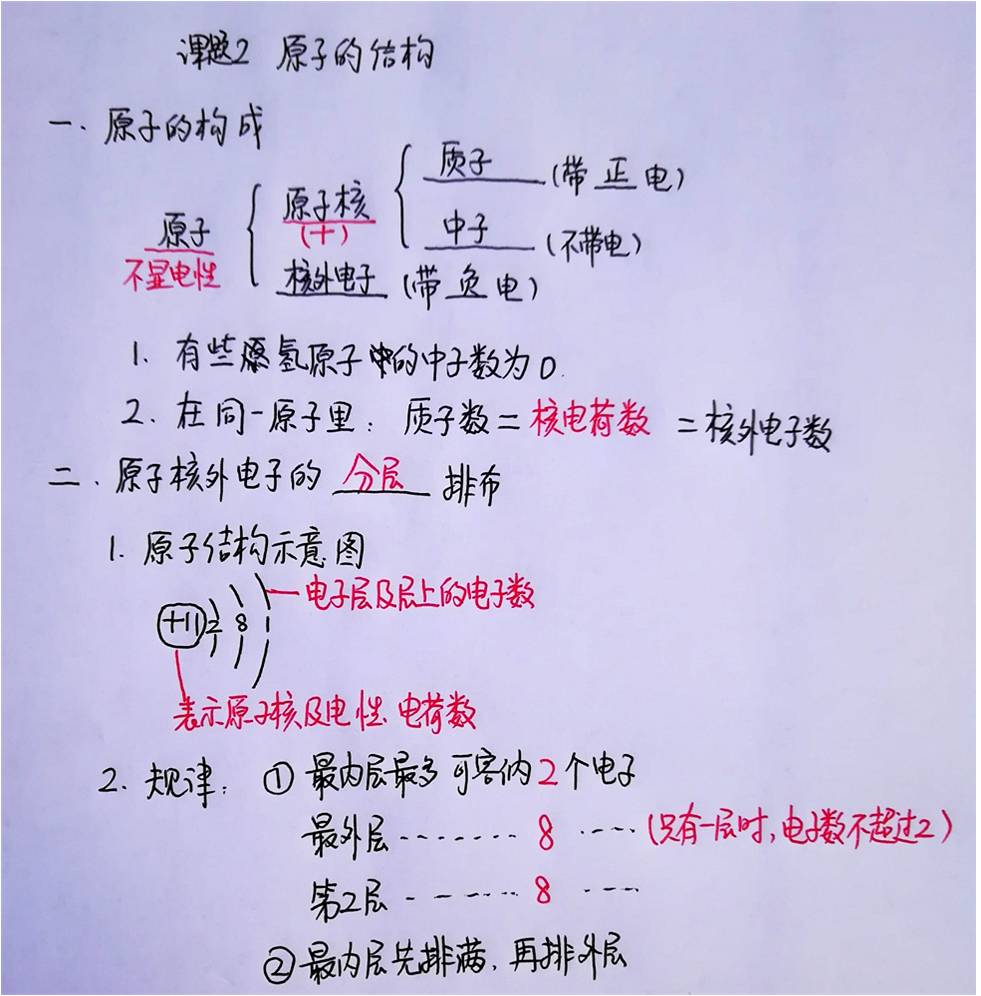 课题2 原子的结构
一、原子的构成
质子 (带正电)
原子 原子核 (+) 中子 (不带电)
不显电性 核外电子 (带负电)
1. 有些氢原子的中子数为0.
2. 在同一原子里：质子数=核电荷数=核外电子数
二、原子核外电子的 分层 排布
1. 原子结构示意图
电子层及层上的电子数
+11 2 8 1
表示原子核及电性、电荷数
2. 规律：① 最内层最多可容纳2个电子
最外层-------8----(只有一层时,电子数不超过2)
第2层-------8----
②最内层先排满,再排外层